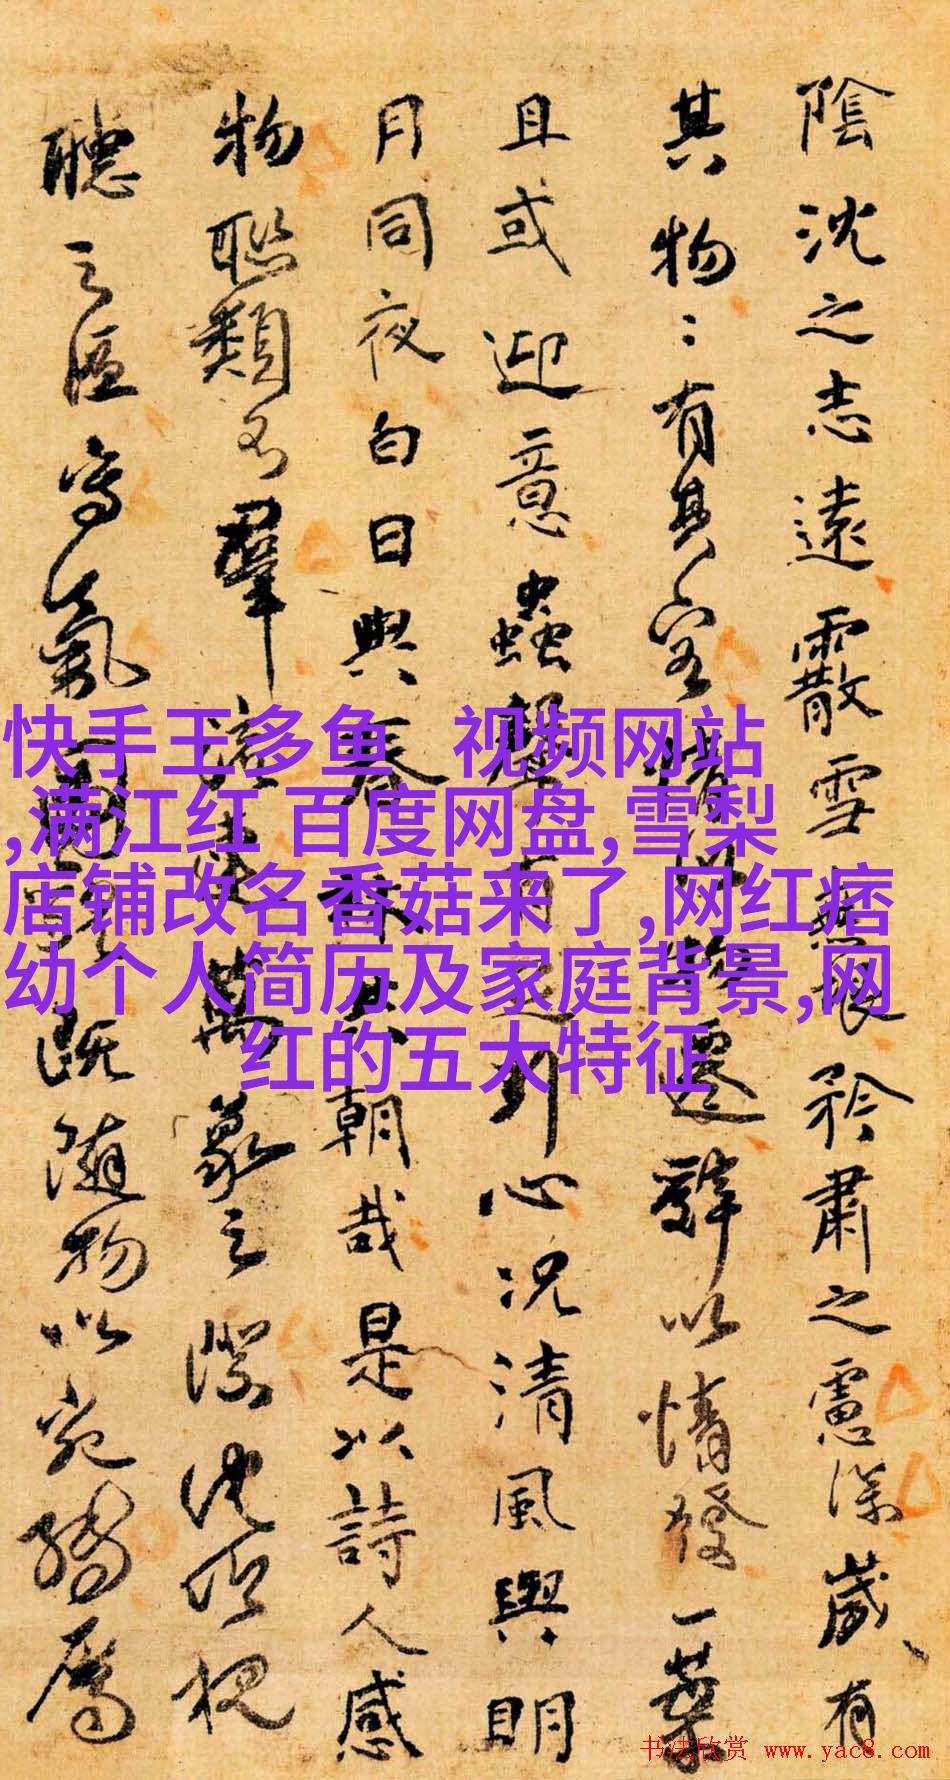 陰沈之志遠霰雪無垠矜肅之慮深歲有
其物〻有其容情以物遷辭以情發一葉
且或迎意蟲聲有足引心況清風與明
月同夜白日與春林共朝哉是以詩人感
物聯類不窮流連萬象之際沈吟視
聽之區寫氣圖貌既隨物以宛轉屬
快手王多鱼 视频网站
,满江红 百度网盘,雪梨
店铺改名香菇来了,网红痞
幼个人简历及家庭背景,网
红的五大特征
书法欣赏 www.yac8.com